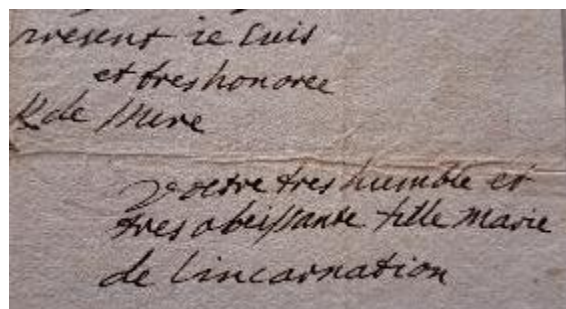 present ie suis
et tres honoree
R de Mere
Vostre tres humble et
tres obeissante fille Marie
de lincarnation